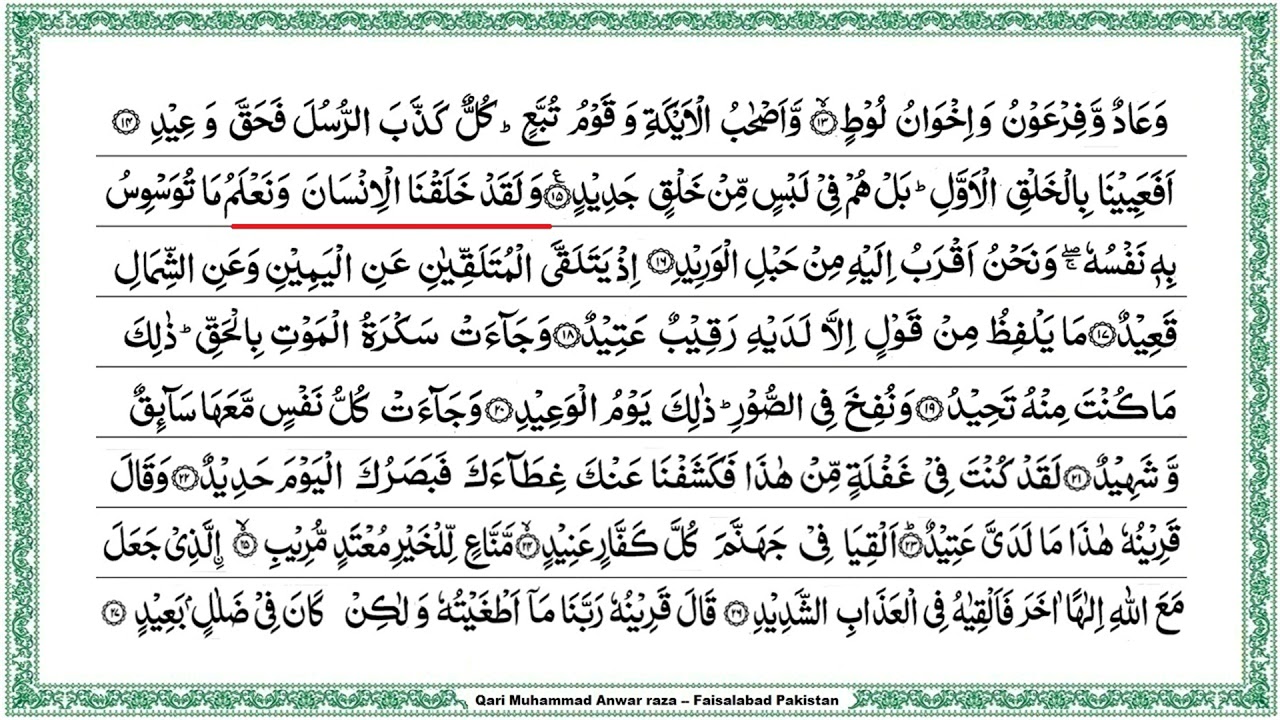 وَعَادٌ وَّفِرْعَوْنُ وَاِخْوَانُ لُوْطٍ ۙ﴿۱۳﴾ وَّاَصْحٰبُ الْاَيْكَةِ وَ قَوْمُ تُبَّعٍ ؕ كُلٌّ كَذَّبَ الرُّسُلَ فَحَقَّ وَ عِيْدِ ﴿۱۴﴾
اَفَعَيِيْنَا بِالْخَلْقِ الْاَوَّلِ ؕ بَلْ هُمْ فِيْ لَبْسٍ مِّنْ خَلْقٍ جَدِيْدٍ ﴿۱۵﴾ع وَ لَقَدْ خَلَقْنَا الْاِنْسَانَ وَنَعْلَمُ مَا تُوَسْوِسُ
بِهٖ نَفْسُهٗ ۖۚ وَنَحْنُ اَقْرَبُ اِلَيْهِ مِنْ حَبْلِ الْوَرِيْدِ ﴿۱۶﴾ اِذْ يَتَلَقَّى الْمُتَلَقِّيٰنِ عَنِ الْيَمِيْنِ وَعَنِ الشِّمَالِ
قَعِيْدٌ ﴿۱۷﴾ مَا يَلْفِظُ مِنْ قَوْلٍ اِلَّا لَدَيْهِ رَقِيْبٌ عَتِيْدٌ ﴿۱۸﴾ وَجَآءَتْ سَكْرَةُ الْمَوْتِ بِالْحَقِّ ؕ ذٰلِكَ
مَا كُنْتَ مِنْهُ تَحِيْدُ ﴿۱۹﴾ وَنُفِخَ فِى الصُّوْرِ ؕ ذٰلِكَ يَوْمُ الْوَعِيْدِ ﴿۲۰﴾ وَجَآءَتْ كُلُّ نَفْسٍ مَّعَهَا سَآئِقٌ
وَّ شَهِيْدٌ ﴿۲۱﴾ لَقَدْ كُنْتَ فِيْ غَفْلَةٍ مِّنْ هٰذَا فَكَشَفْنَا عَنْكَ غِطَآءَكَ فَبَصَرُكَ الْيَوْمَ حَدِيْدٌ ﴿۲۲﴾ وَقَالَ
قَرِيْنُهٗ هٰذَا مَا لَدَىَّ عَتِيْدٌ ؕ﴿۲۳﴾ اَلْقِيَا فِيْ جَهَنَّمَ كُلَّ كَفَّارٍ عَنِيْدٍ ۙ﴿۲۴﴾ مَّنَّاعٍ لِّلْخَيْرِ مُعْتَدٍ مُّرِيْبِ ۙ﴿۲۵﴾ اۨلَّذِيْ جَعَلَ
مَعَ اللّٰهِ اِلٰهًا اٰخَرَ فَاَلْقِيٰهُ فِى الْعَذَابِ الشَّدِيْدِ ﴿۲۶﴾ قَالَ قَرِيْنُهٗ رَبَّنَا مَآ اَطْغَيْتُهٗ وَ لٰكِنْ كَانَ فِيْ ضَلٰلٍۭ بَعِيْدٍ ﴿۲۷﴾
Qari Muhammad Anwar raza – Faisalabad Pakistan